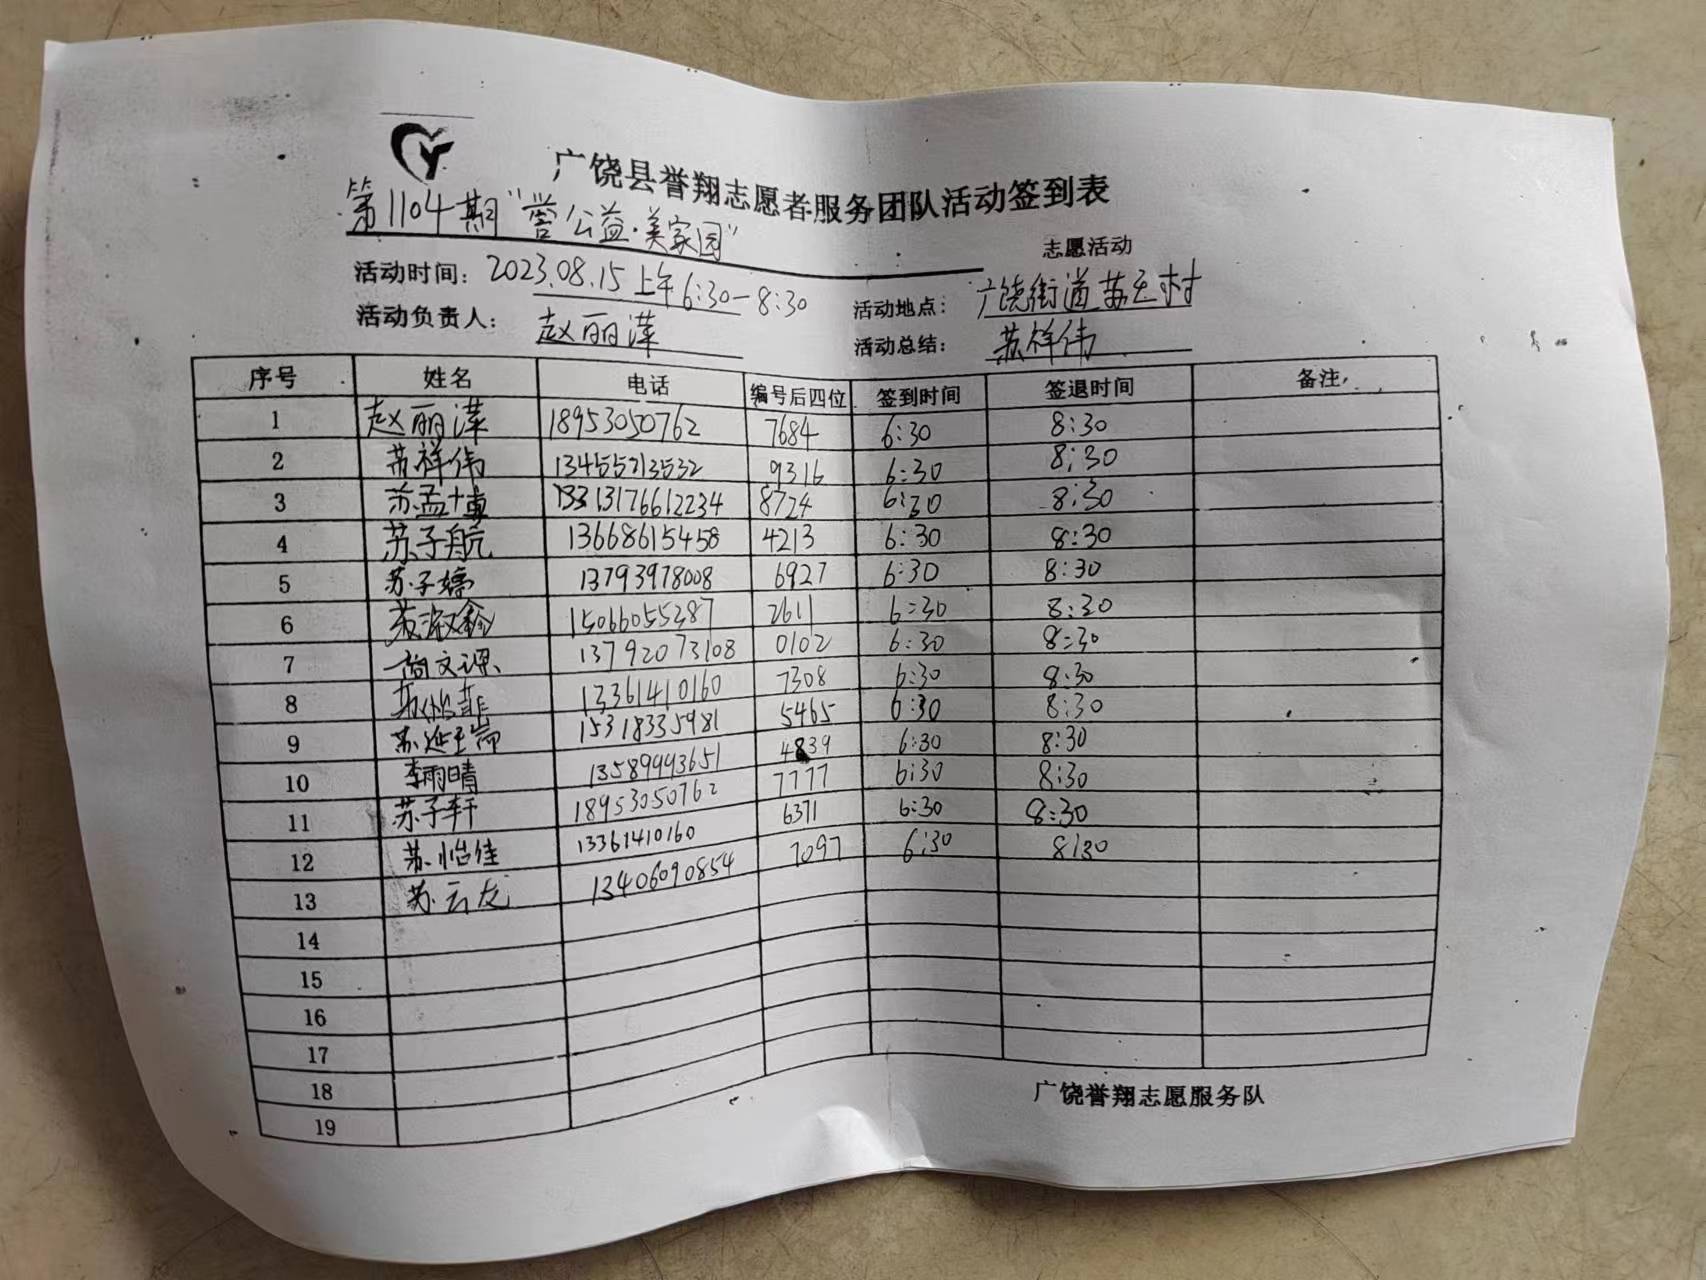 广饶县誉翔志愿者服务团队活动签到表
第1104期"誉公益·美家园"
志愿活动
活动时间: 2023.08.15 上午 6:30-8:30 活动地点: 广饶街道苏王村
活动负责人: 赵丽萍 活动总结: 苏祥伟
序号 姓名 电话 编号后四位 签到时间 签退时间 备注
1 赵丽萍 18953050762 7684 6:30 8:30
2 苏祥伟 13455213532 9316 6:30 8:30
3 苏孟博 13176612234 8724 6:30 8:30
4 苏子航 13668615458 4213 6:30 8:30
5 苏子婷 13793978008 6927 6:30 8:30
6 苏淑鑫 15066055387 2611 6:30 8:30
7 尚文 13792073108 0102 6:30 8:30
8 苏怡菲 13361410160 7308 6:30 8:30
9 苏延 15318335981 5465 6:30 8:30
10 李雨晴 13589993651 4839 6:30 8:30
11 苏子轩 18953050762 7777 6:30 8:30
12 苏怡佳 13361410160 6371 6:30 8:30
13 苏云龙 13406090854 7097 6:30 8:30
14
15
16
17
18
19
广饶誉翔志愿服务队